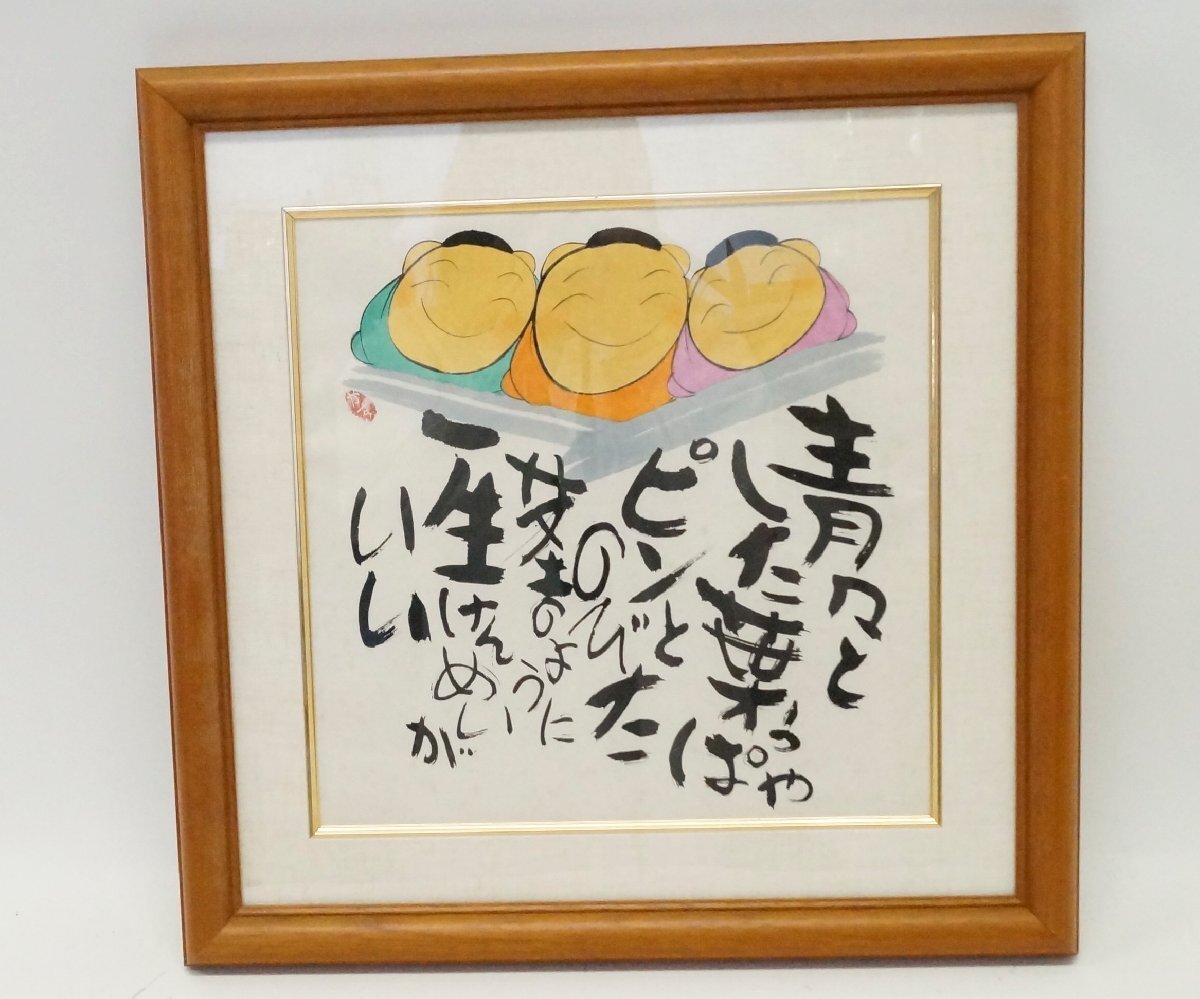 青々と
した葉っぱや
ピンと
のびた
茎のように
一生けんめいが
いい